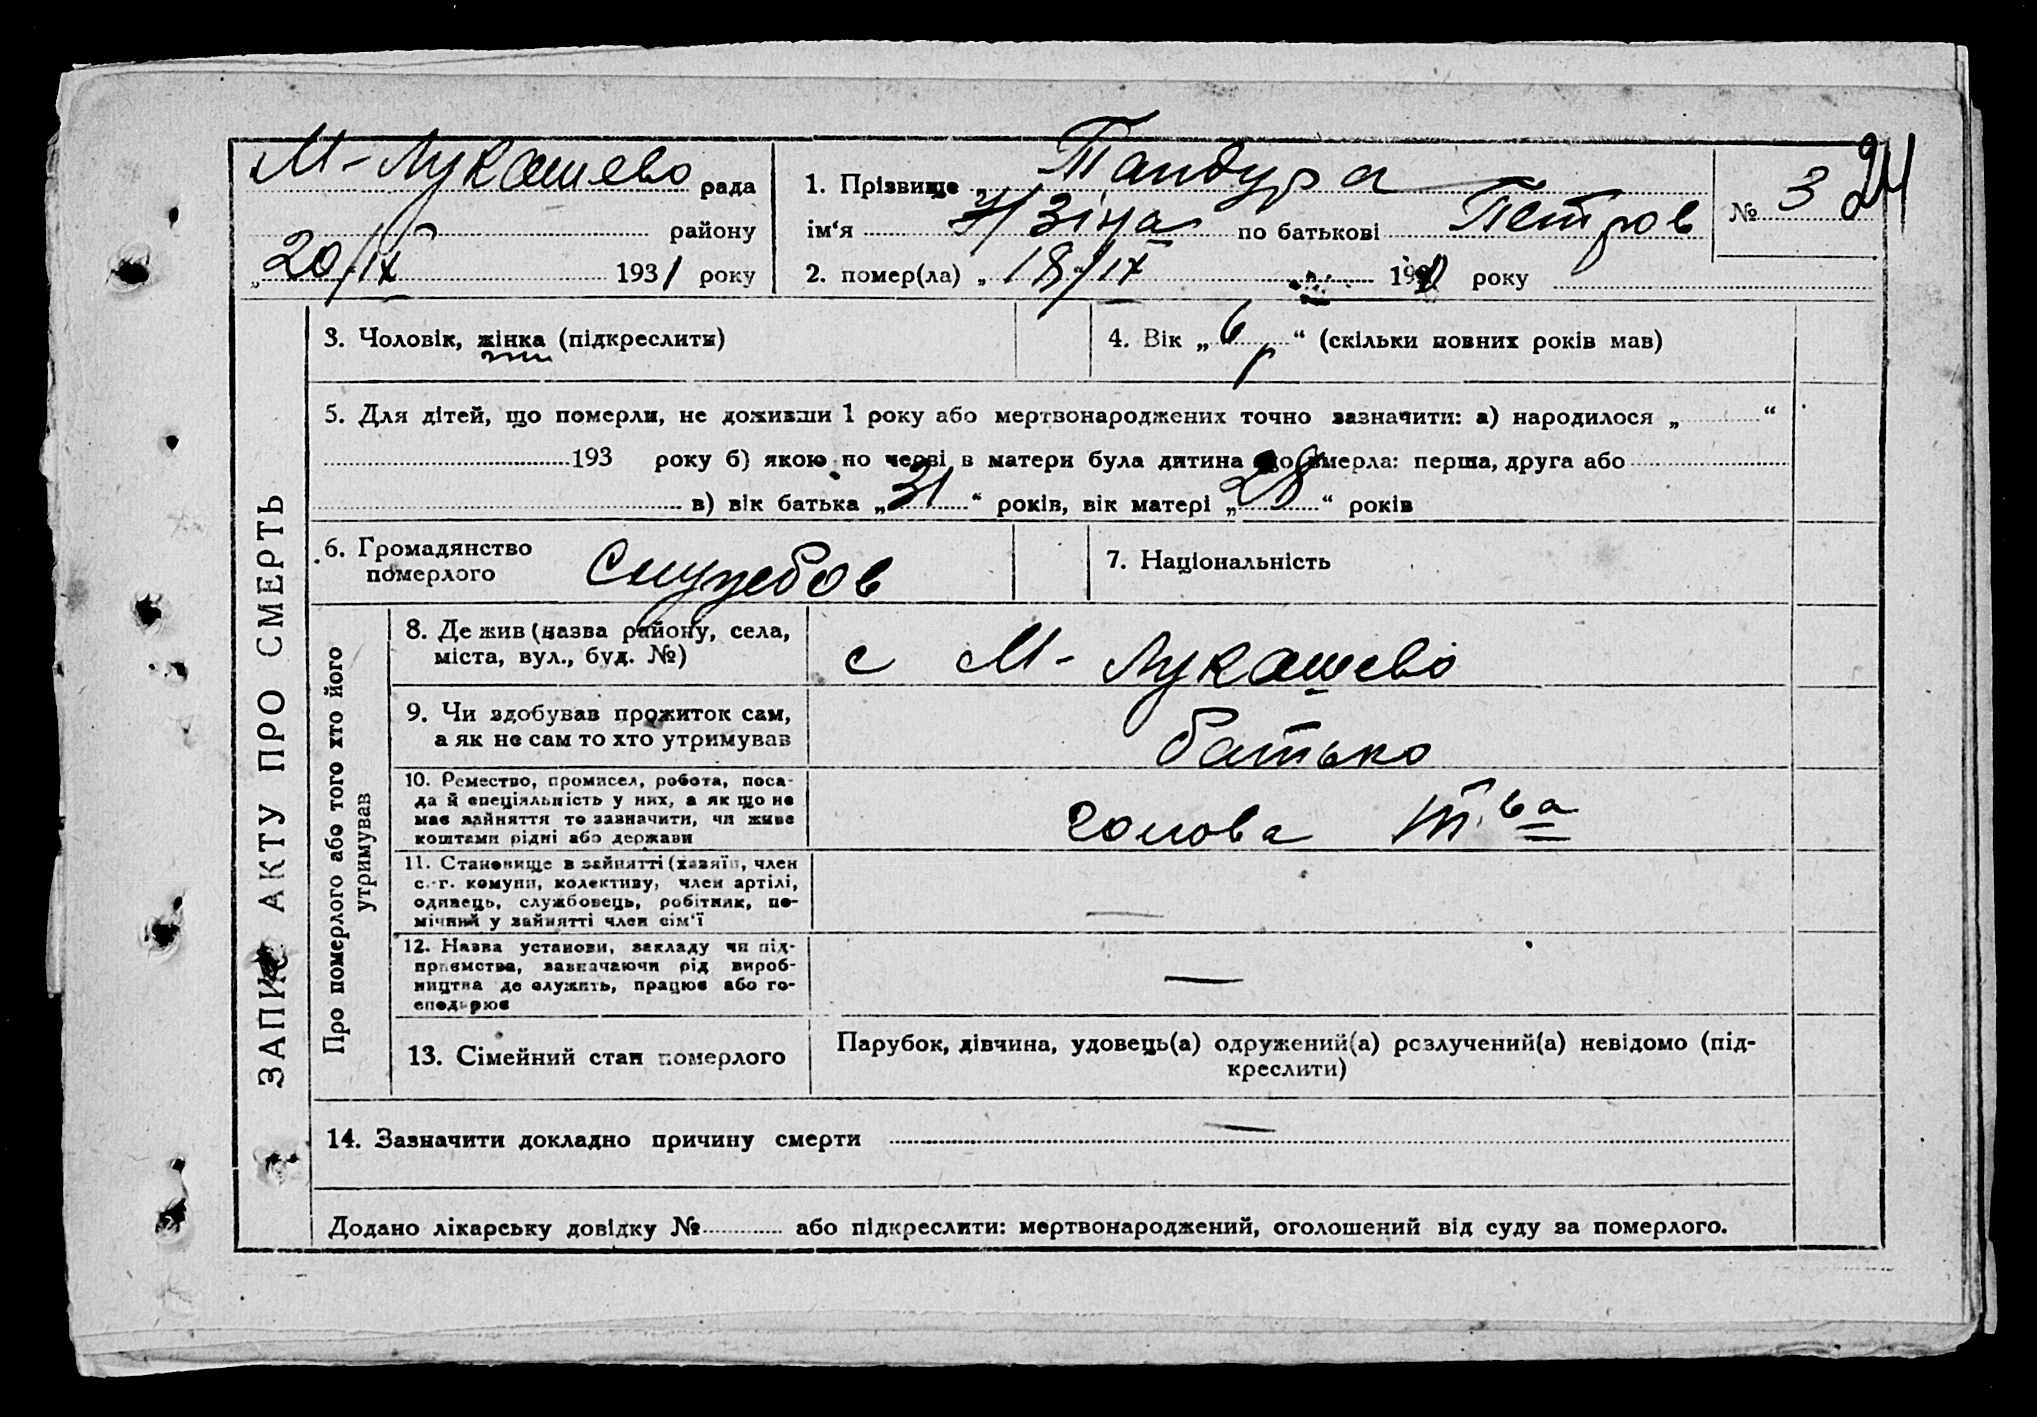 М-Лукашево рада
району
„20/IX 1931 року
1. Прізвище „ Тандура
ім‘я Зіна по батькові Петров
2. помер(ла) „ 18/IX 193 року
№ 3
24
ЗАПИС АКТУ ПРО СМЕРТЬ
3. Чоловік, жінка (підкреслити)
4. Вік „ 6 р “ (скільки повних років мав)
5. Для дітей, що померли, не доживши 1 року або мертвонароджених точно зазначити: а) народилося „ “
193 року б) якою по черві в матери була дитина що вмерла: перша, друга або
в) вік батька „ 31 “ років, вік матері „ 28 “ років
6. Громадянство
померлого
Службов
7. Національність
Про померлого або того хто його
утримував
8. Де жив (назва району, села,
міста, вул., буд. №)
с М-Лукашево
9. Чи здобував прожиток сам,
а як не сам то хто утримував
батько
10. Ремество, промисел, робота, поса-
да й спеціяльність у них, а як що не
має зайняття то зазначити, чи живе
коштами рідні або держави
голова т.ва
11. Становище в зайнятті (хазяїн, член
с.-г. комуни, колективу, член артілі,
одинець, службовець, робітник, по-
мічний у зайнятті член сім‘ї
—
12. Назва установи, закладу чи під-
приємства, зазначаючи рід вироб-
ництва де служить, працює або го-
сподарює
—
13. Сімейний стан померлого
Парубок, дівчина, удовець(а) одружений(а) розлучений(а) невідомо (під-
креслити)
14. Зазначити докладно причину смерти —
Додано лікарську довідку № або підкреслити: мертвонароджений, оголошений від суду за померлого.